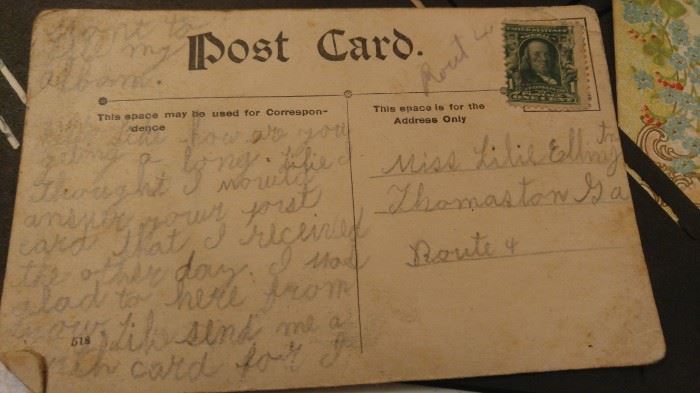 want to
my
album.
Post Card.
Rout 4
1
This space may be used for Correspon-
dence
This space is for the
Address Only
Lilie how are you
geting a long. Lilie I
thought I would
anser your post
card that I received
the other day. I was
glad to here from
you Lilie send me a
card for I
518
Miss Lilie
Thomaston Ga
Route 4